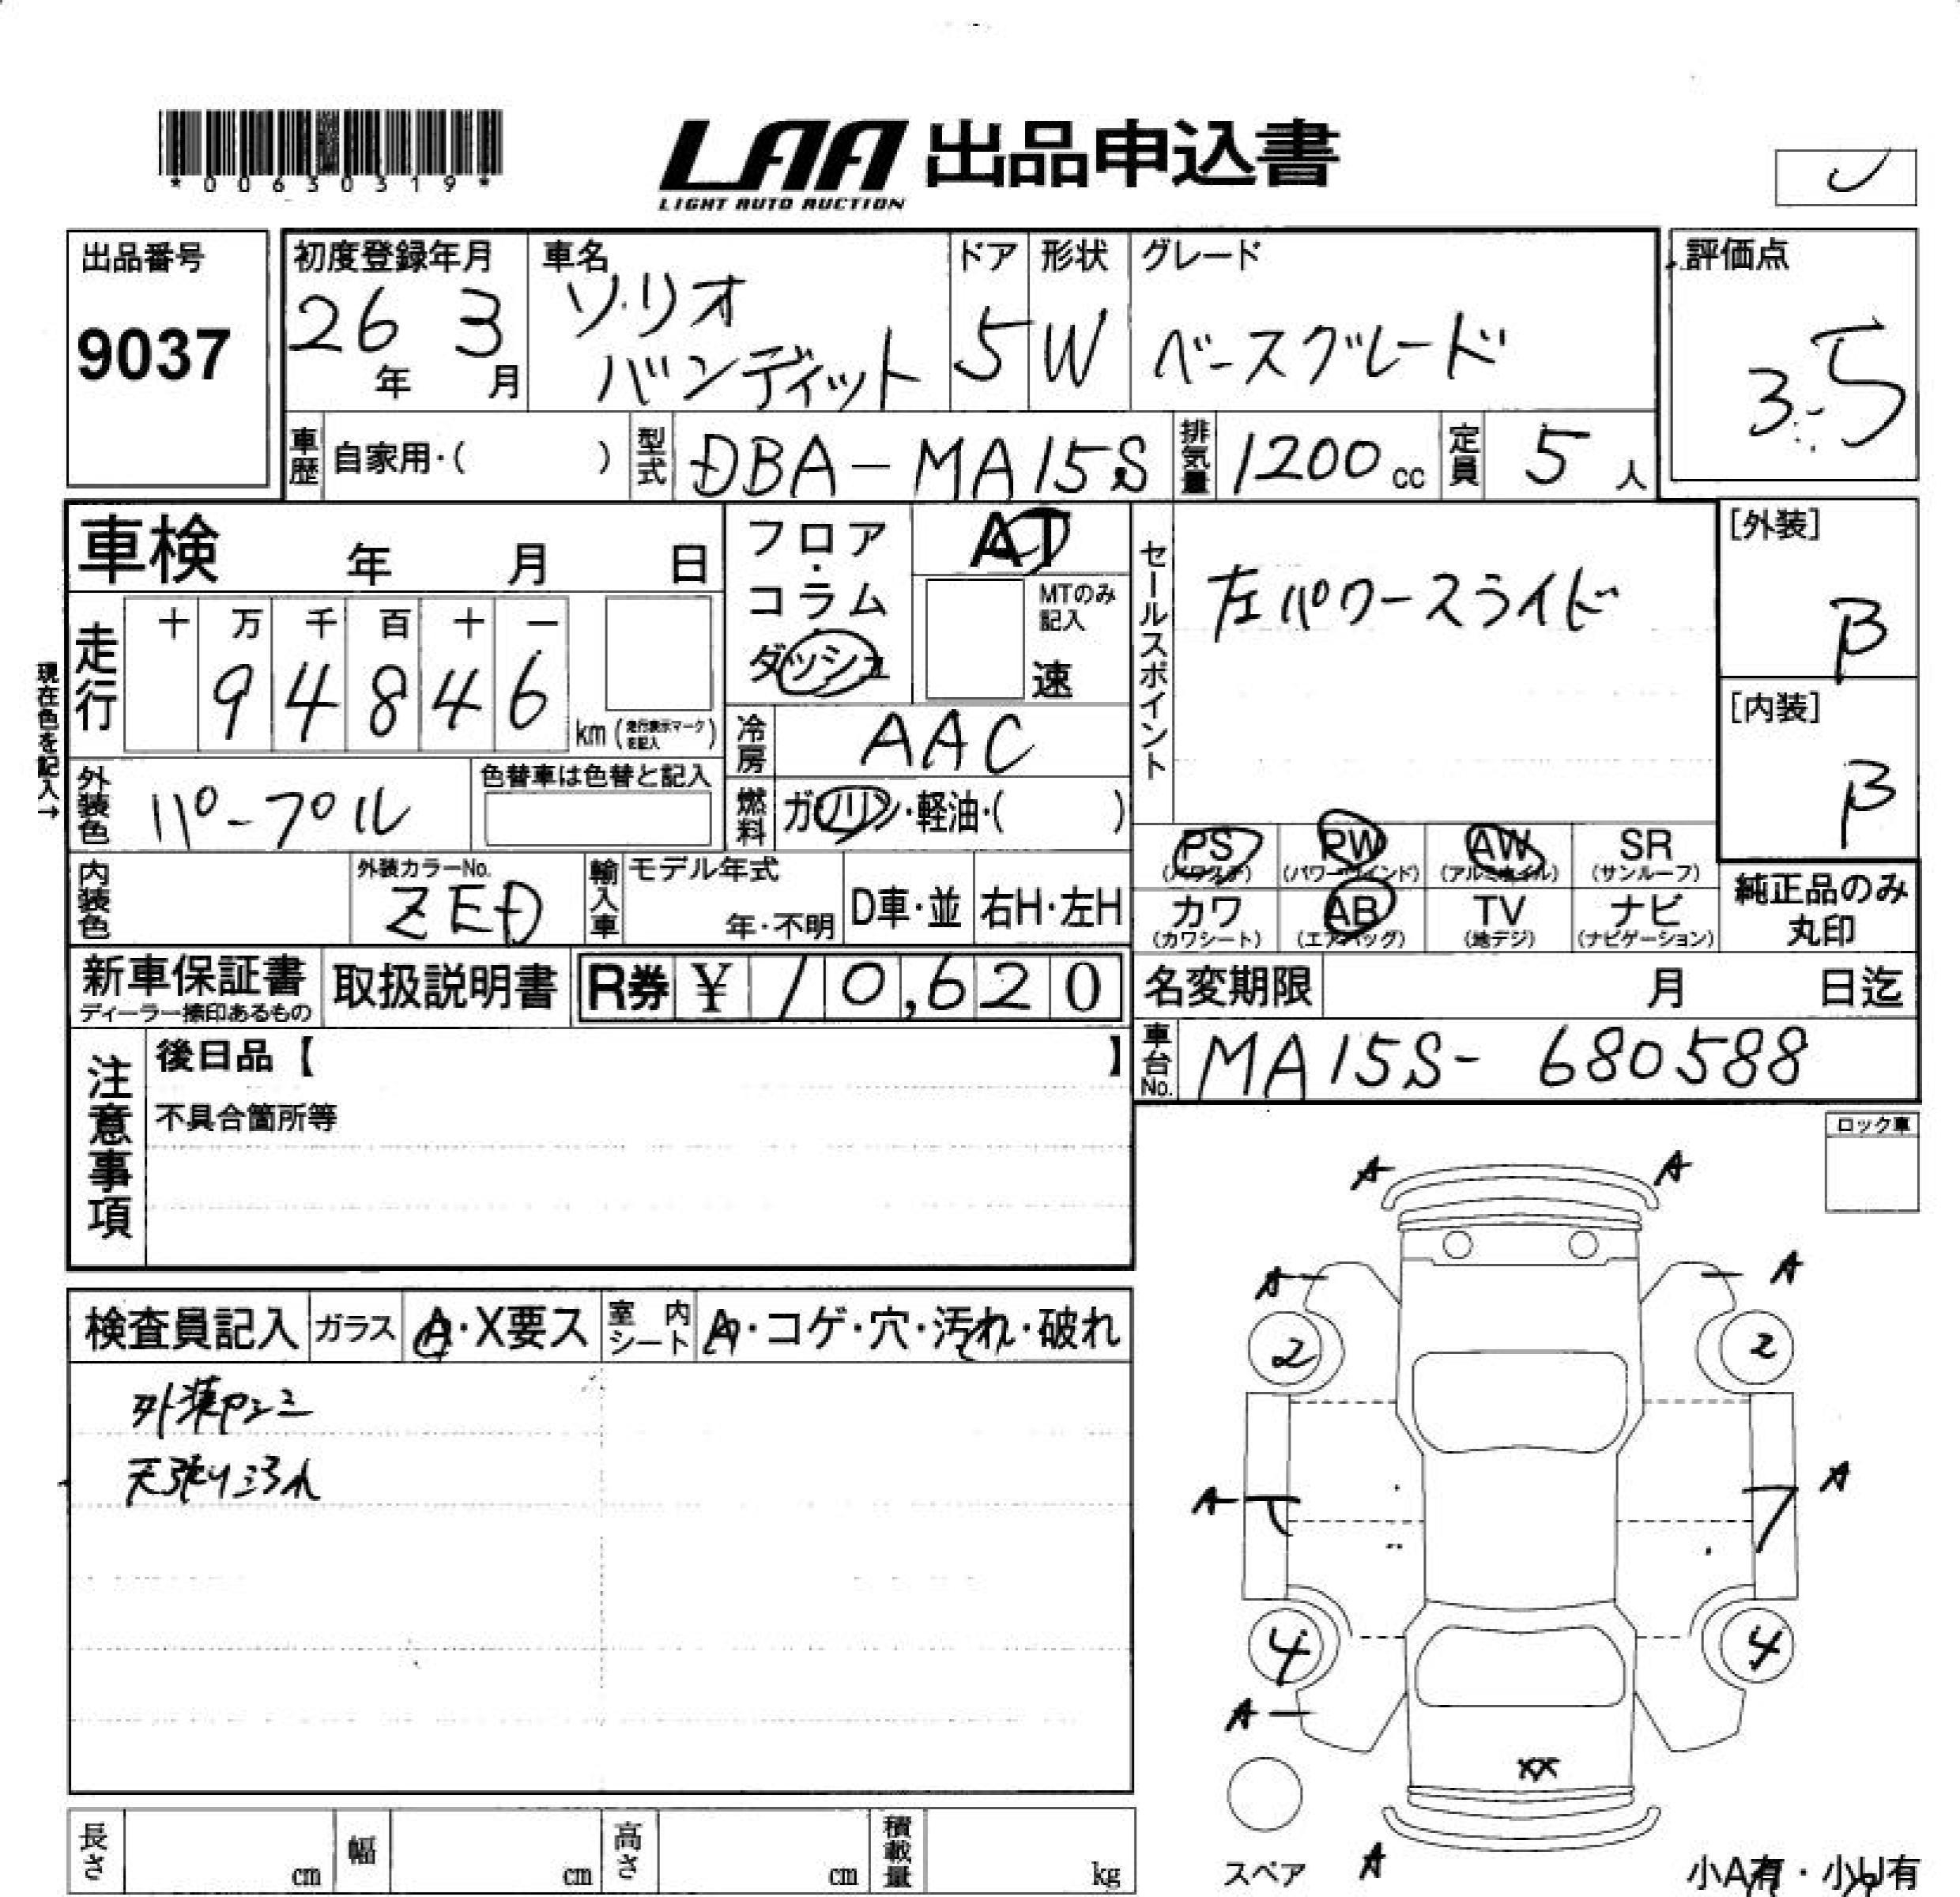 *00630319*
LAA 出品申込書
LIGHT AUTO AUCTION
出品番号
9037
初度登録年月
26年 3月
車名
ソリオ
バンディット
ドア
5
形状
W
グレード
ベースグレード
評価点
3.5
車歴 自家用・( )
型式 DBA-MA15S
排気量 1200 cc
定員 5 人
車検 年 月 日
走行
十 万 千 百 十 一
9 4 8 4 6
km (走行表示マークを記入)
現在色を記入→
外装色 パープル
色替車は色替と記入
内装色
外装カラーNo.
ZED
輸入車
モデル年式
年・不明
D車・並
右H・左H
フロア・コラム・ダッシュ
AT
MTのみ記入
速
冷房 AAC
燃料 ガソリン・軽油・( )
セールスポイント
左パワースライド
[外装]
B
[内装]
B
PS
PW
AW (アルミホイル)
SR (サンルーフ)
カワ (カワシート)
AB (エアバッグ)
TV (地デジ)
ナビ (ナビゲーション)
純正品のみ
丸印
新車保証書
ディーラー捺印あるもの
取扱説明書
R券 ¥ 10,620
名変期限 月 日迄
車台No. MA15S-680588
注意事項
後日品【 】
不具合箇所等
ロック車
検査員記入
ガラス A・X要ス
室内シート A・コゲ・穴・汚れ・破れ
天張り汚れ
A A
A A
2 2
A A
4 4
A
XX
スペア
A
小A有・小U有
長さ cm
幅 cm
高さ cm
積載量 kg